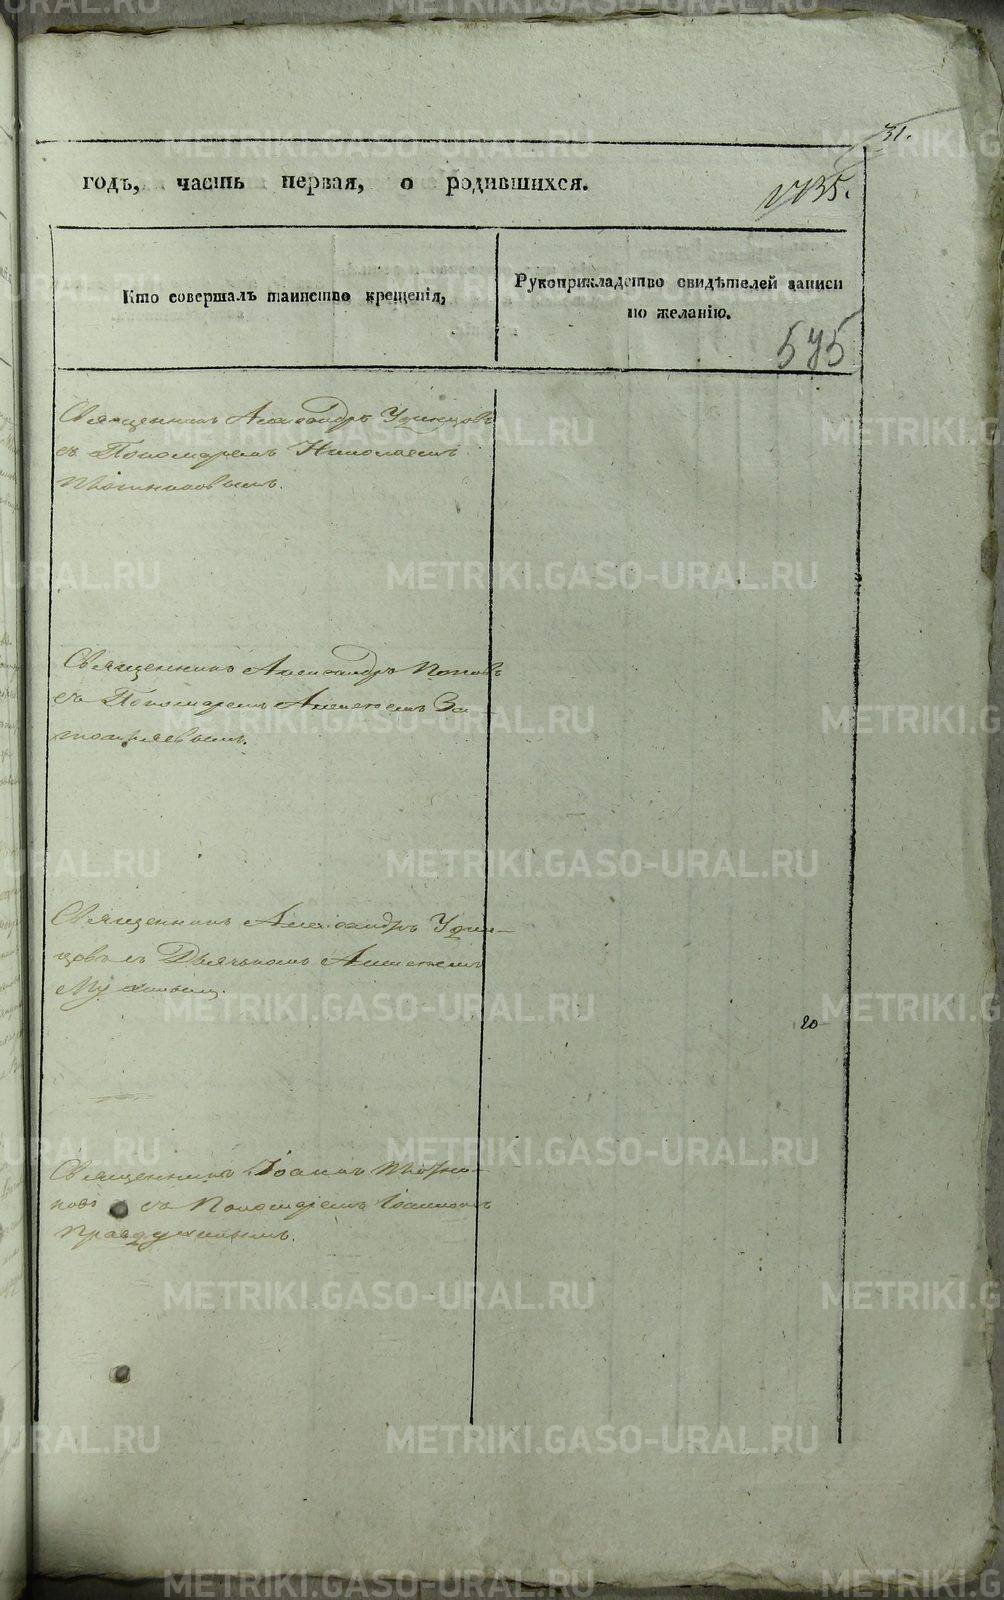 31.
годъ, часть первая, о родившихся.
135.
Кто совершалъ таинство крещенія,
Рукоприкладство свидѣтелей записи
по желанію.
575
Священникъ Александръ Удинцовъ
съ Пономаремъ Николаемъ
Священникъ Александръ Поповъ
съ Пономаремъ Алексеемъ За
Священникъ Александръ Удин-
цовъ съ Дьячкомъ Алексеемъ
Священникъ Іоаннъ
съ Пономаремъ Іоанномъ
Правдухинымъ.
20
METRIKI.GASO-URAL.RU